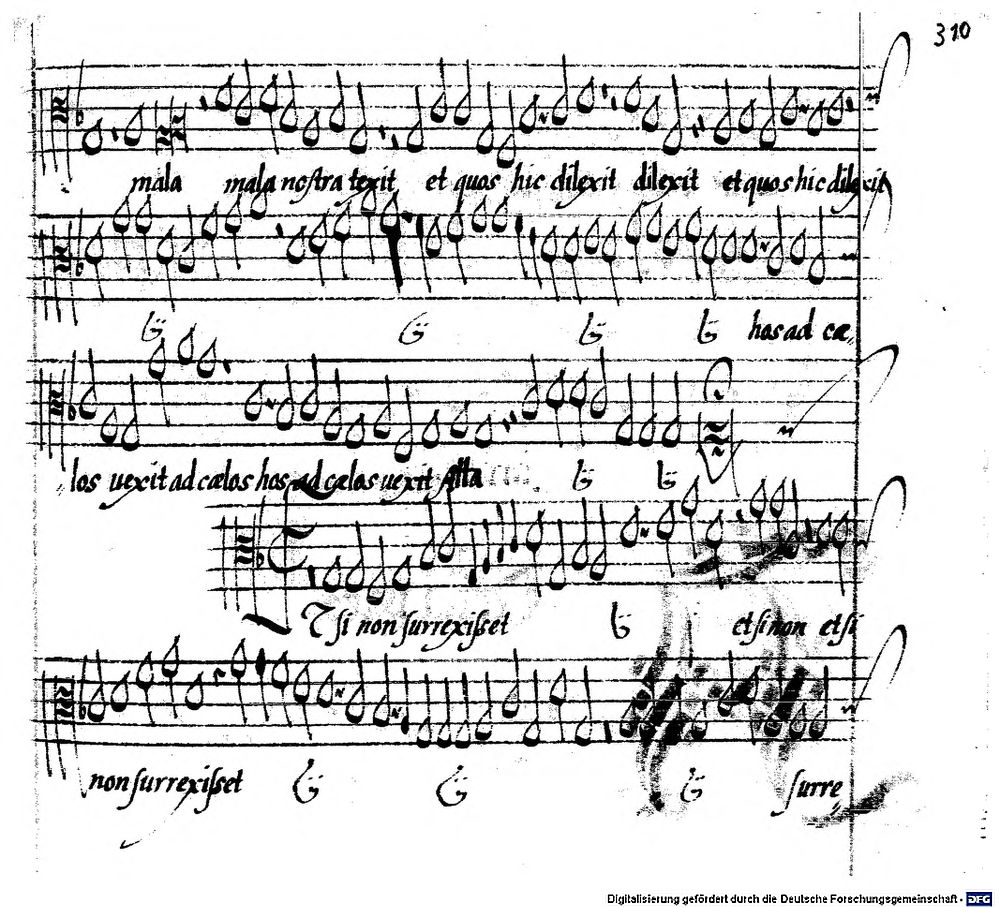 310
mala mala nostra texit et quos hic dilexit dilexit et quos hic dilexit
hos ad cæ
los uexit ad cælos hos ad cælos uexit Alta
Tsi non surrexisset et si non et si
non surrexisset surre
Digitalisierung gefördert durch die Deutsche Forschungsgemeinschaft - DFG